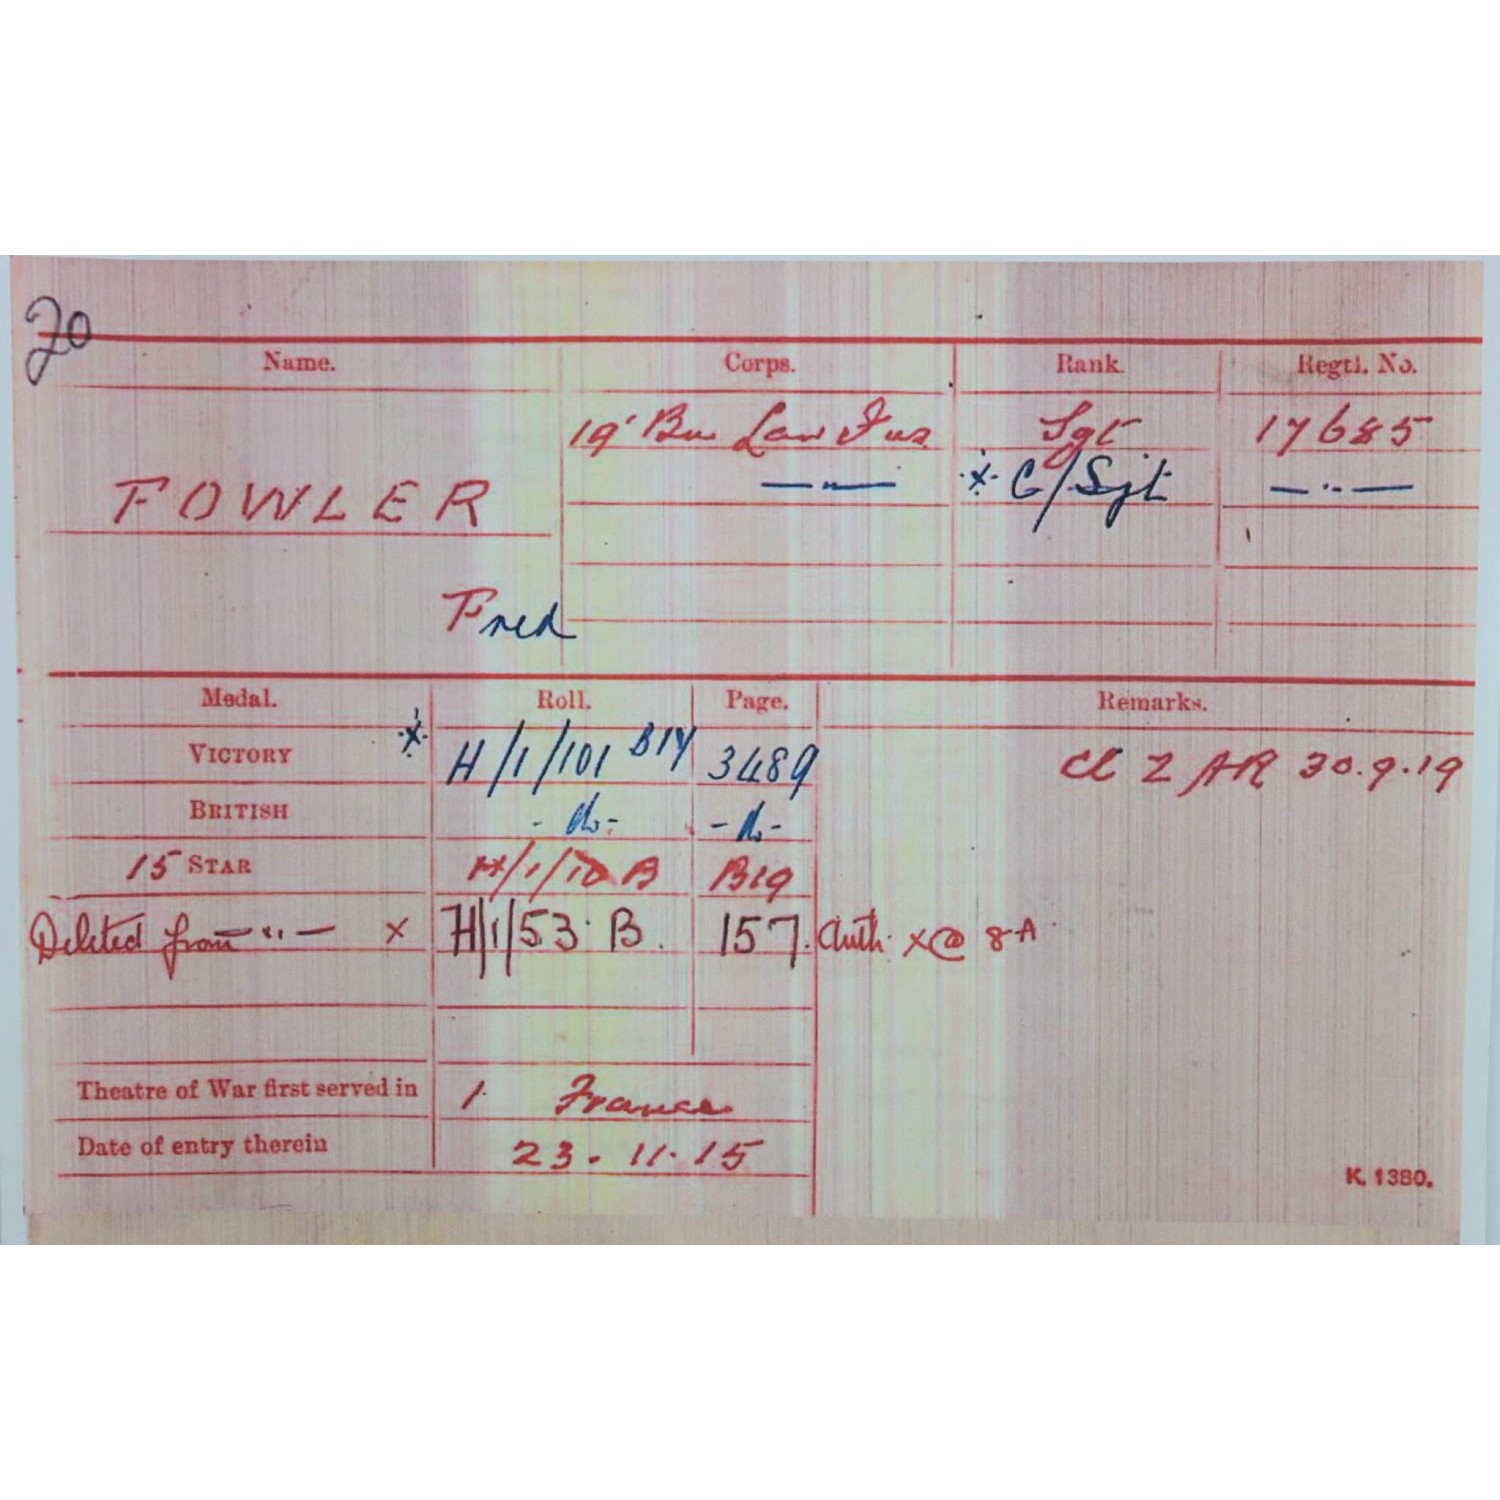 20
Name. Corps. Rank. Regtl. No.
19' Bn Lan Fus Sgt 17685
FOWLER — " — * C/Sjt — " —
Fred
Medal. Roll. Page. Remarks.
VICTORY * H/1/101 B14 3489 Cl Z AR 30.9.19
BRITISH - do - - do -
15 STAR H/1/10 B B19
Deleted from — " — x H/1/53 B. 157. Auth. x@ 8 A
Theatre of War first served in 1. France
Date of entry therein 23. 11. 15
K. 1380.